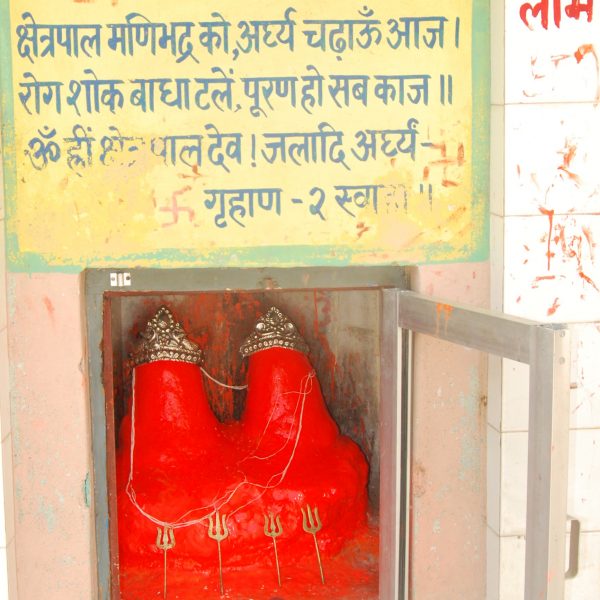 क्षेत्रपाल मणिभद्र को, अर्घ्य चढ़ाऊँ आज।
रोग शोक बाधा टलें, पूरण हो सब काज॥
ॐ ह्रीं क्षेत्रपाल देव! जलादि अर्घ्यं-
गृहाण - २ स्वाहा॥
लाभ